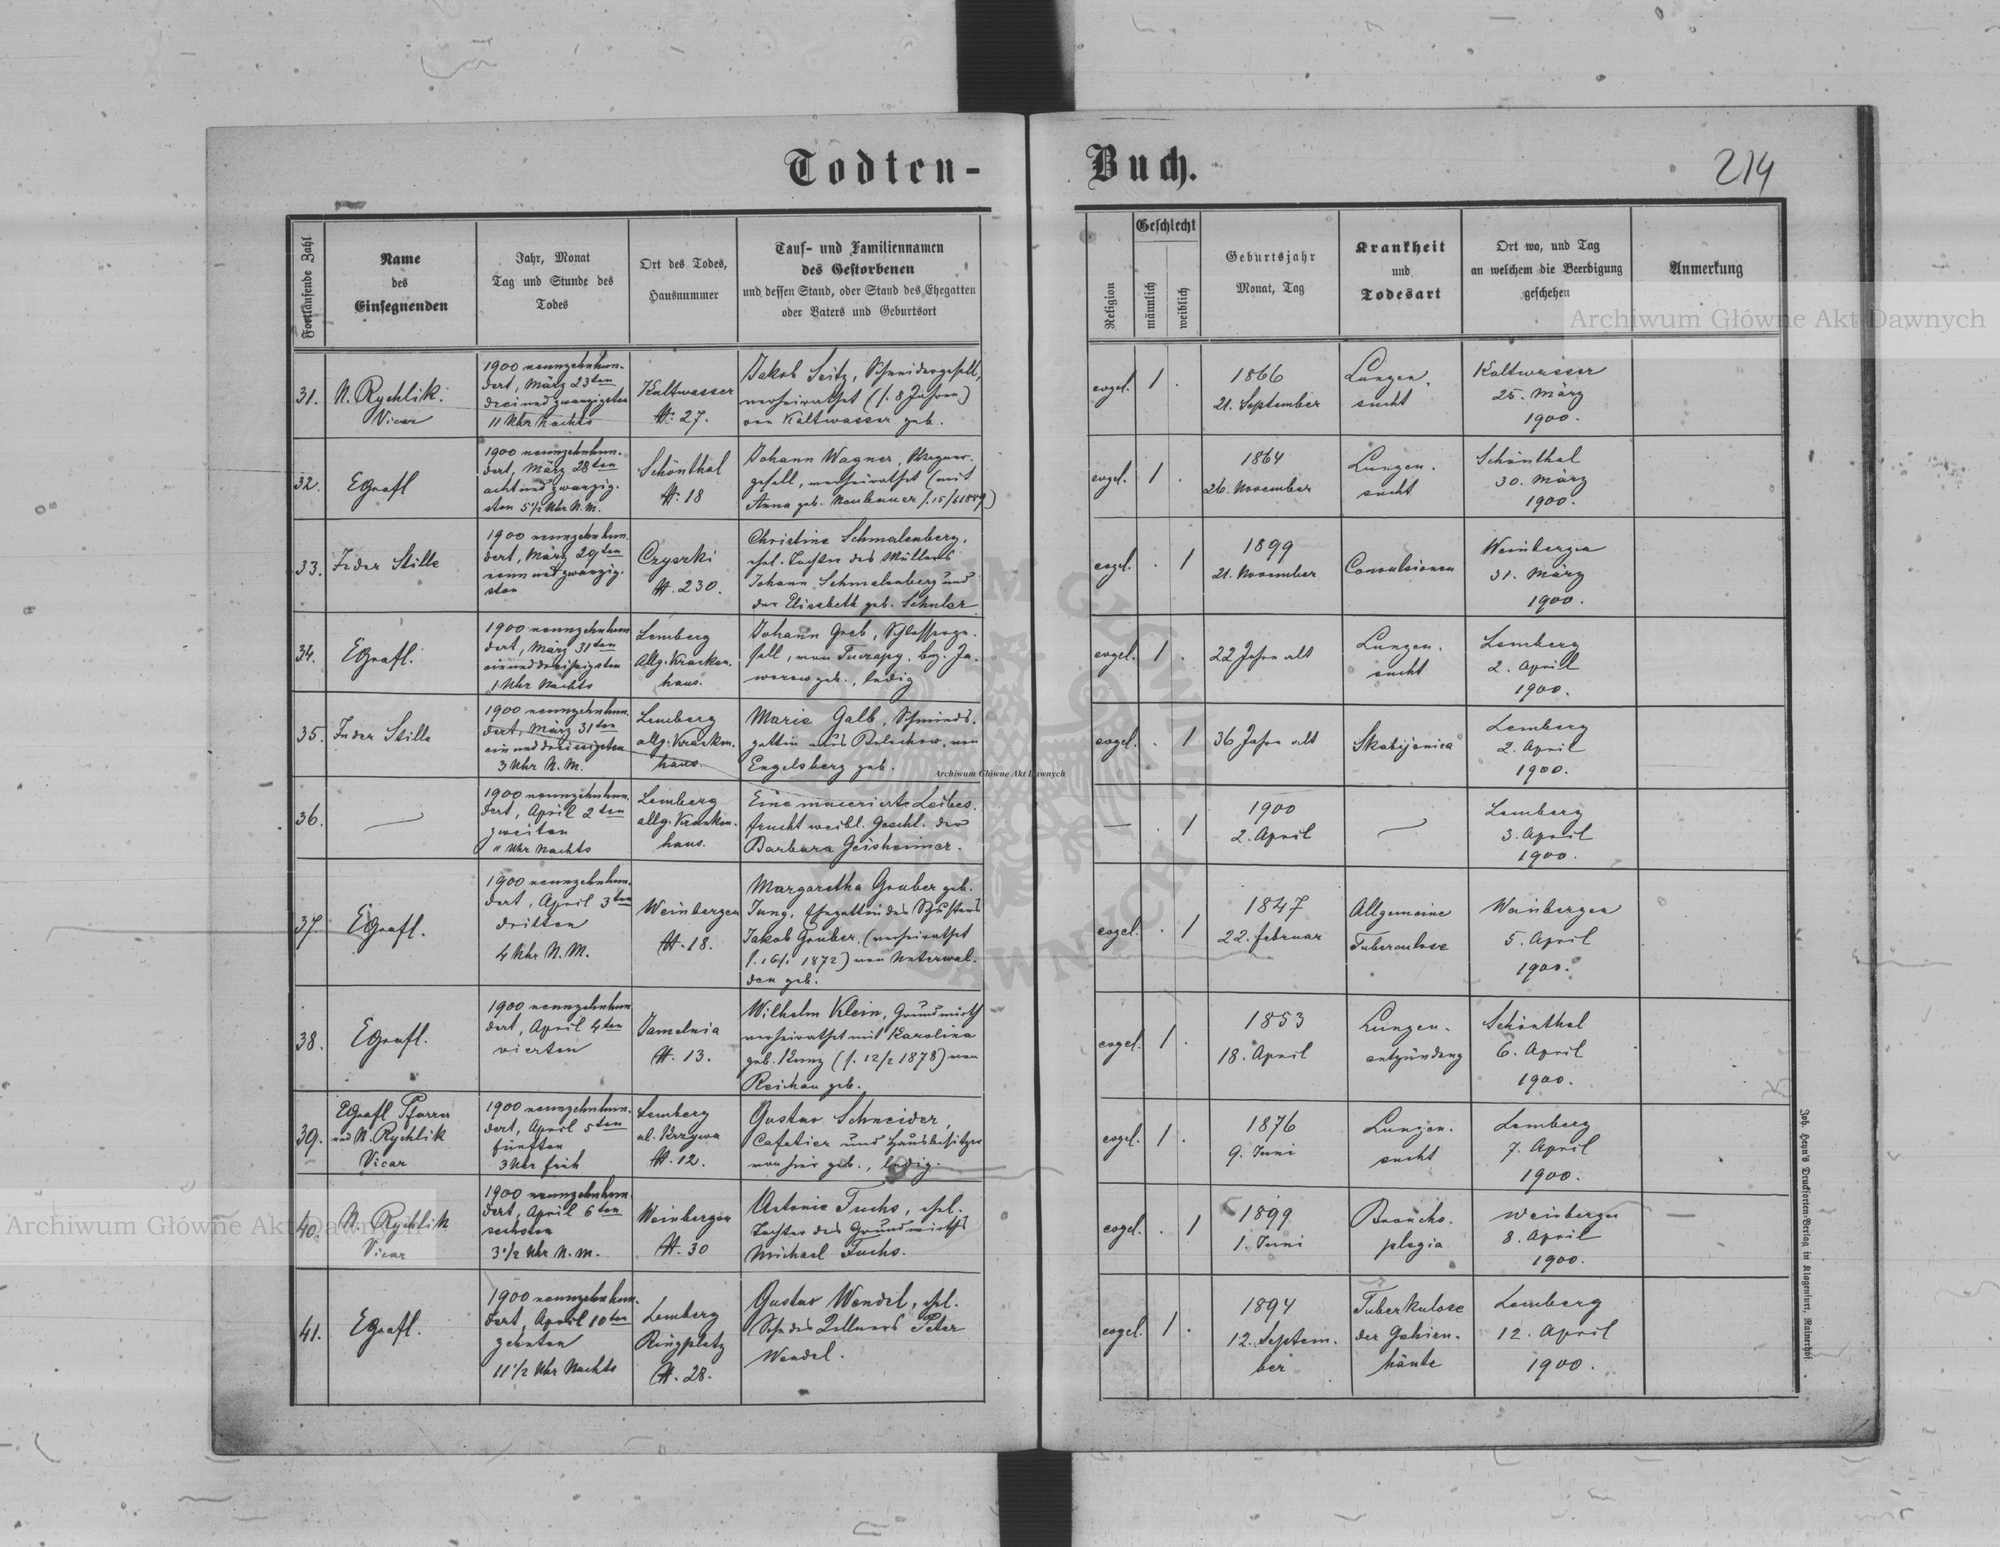 Todten-Buch.
214
Fortlaufende Zahl
Name
des
Einsegnenden
Jahr, Monat
Tag und Stunde des
Todes
Ort des Todes,
Hausnummer
Tauf- und Familiennamen
des Gestorbenen
und dessen Stand, oder Stand des Ehegatten
oder Vaters und Geburtsort
Religion
Geschlecht
männlich
weiblich
Geburtsjahr
Monat, Tag
Krankheit
und
Todesart
Ort wo, und Tag
an welchem die Beerdigung
geschehen
Anmerkung
31.
N. Rychlik.
Vicar
1900 neunzehnhun-
dert, März 23ten
dreiundzwanzigsten
11 Uhr Nachts
Kaltwasser
N. 27.
Jakob Seitz, Schneidergesell,
verheirathet (s. 8 Jahren)
von Kaltwasser geb.
evgel.
1
.
1866
21. September
Lungen-
sucht
Kaltwasser
25. März
1900.
32.
EGrafl
1900 neunzehnhun-
dert, März 28ten
achtundzwanzig-
sten 5 1/2 Uhr N.M.
Schönthal
N. 18
Johann Wagner, Wagner-
gesell, verheirathet (mit
Anna geb.
evgel.
1
.
1864
26. November
Lungen-
sucht
Schönthal
30. März
1900.
33.
In der Stille
1900 neunzehnhun-
dert, März 29ten
neunundzwanzig-
sten
Czyszki
N. 230.
Christine Schmalenberg,
ehel. Tochter des Müllers
Johann Schmalenberg und
der Elisabeth geb. Schuler
evgel.
.
1
1899
21. November
Convulsionen
Weinbergen
31. März
1900.
34.
EGrafl.
1900 neunzehnhun-
dert, März 31ten
einunddreißigsten
1 Uhr Nachts
Lemberg
Allg. Kranken-
haus.
Johann Greb, Schlosserge-
sell, von Tuczapy, bez. Ja-
worow geb., ledig
evgel.
1
.
22 Jahre alt
Lungen-
sucht
Lemberg
2. April
1900.
35.
In der Stille
1900 neunzehnhun-
dert, März 31ten
einunddreissigsten
3 Uhr N.M.
Lemberg
allg. Kranken-
haus.
Marie Galb, Schmieds-
gattin aus Bolechow, von
Engelsberg geb.
evgel.
.
1
36 Jahre alt
Lemberg
2. April
1900.
36.
1900 neunzehnhun-
dert, April 2ten
zweiten
" Uhr Nachts
Lemberg
allg. Kranken-
haus.
Eine macerirte Leibes-
frucht weibl. Geschl. der
Barbara Geisheimer.
—
.
1
1900
2. April
Lemberg
3. April
1900.
37.
EGrafl.
1900 neunzehnhun-
dert, April 3ten
dritten
4 Uhr N.M.
Weinbergen
N. 18.
Margaretha Gruber geb.
Jung, Ehegattin des Schusters
Jakob Gruber, (verheirathet
1872) von Unterwal-
den geb.
evgel.
.
1
1847
22. Februar
Allgemeine
Tuberculose
Weinbergen
5. April
1900.
38.
EGrafl.
1900 neunzehnhun-
dert, April 4ten
vierten
Jamelnia
N. 13.
Wilhelm Klein, Grundwirth
verheirathet mit Karolina
geb. Kunz (s. 12/2 1878) von
Reichau geb.
evgel.
1
.
1853
18. April
Lungen-
entzündung
Schönthal
6. April
1900.
39.
EGrafl Pfarrer
und N. Rychlik
Vicar
1900 neunzehnhun-
dert, April 5ten
fünften
3 Uhr früh
Lemberg
ul. Krzywa
N. 12.
Gustav Schneider,
Cafetier und Hausbesitzer
von hier geb., ledig.
evgel.
1
.
1876
9. Juni
Lungen-
sucht
Lemberg
7. April
1900.
40.
N. Rychlik
Vicar
1900 neunzehnhun-
dert, April 6ten
sechsten
3 1/2 Uhr N.M.
Weinbergen
N. 30
Antonie Fuchs, ehel.
Tochter des Grundwirths
Michael Fuchs.
evgel.
.
1
1899
1. Juni
Broncho-
plegia
Weinbergen
8. April
1900.
41.
EGrafl.
1900 neunzehnhun-
dert, April 10ten
zehnten
11 1/2 Uhr Nachts
Lemberg
Ringplatz
N. 28.
Gustav Wendel, ehel.
Sohn des Zellners Peter
Wendel.
evgel.
1
.
1894
12. Septem-
ber
Tuberkulose
der Gehirn-
häute
Lemberg
12. April
1900.
Joh. Heyn's Drucksorten-Verlag in Klagenfurt, Rainerhof.
Archiwum Główne Akt Dawnych
Archiwum Główne Akt Dawnych
Archiwum Główne Akt Dawnych